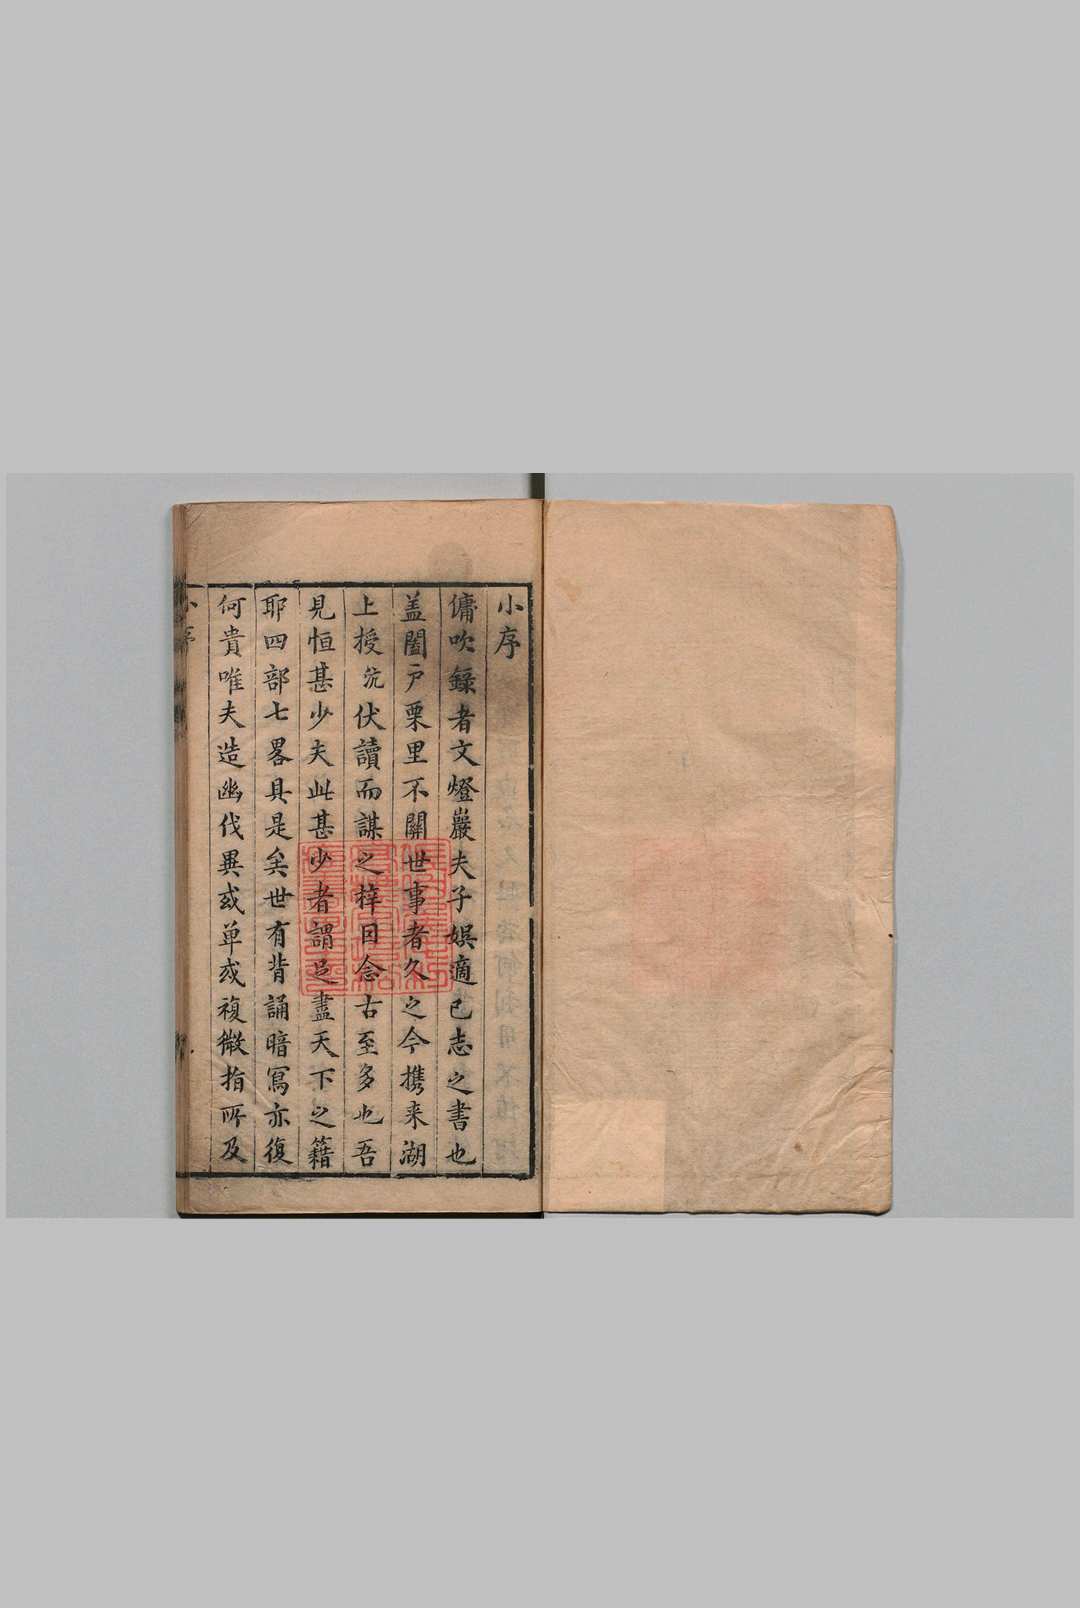 小序
傭吹錄者文燈巖夫子娛適己志之書也
盖闔戸栗里不關世事者久之今携来湖
上授沉伏讀而謀之梓因念古至多也吾
見恒甚少夫此甚少者謂足盡天下之籍
耶四部七畧具是矣世有背誦暗寫亦復
何貴唯夫造幽伐異或单或複微指所及
小序